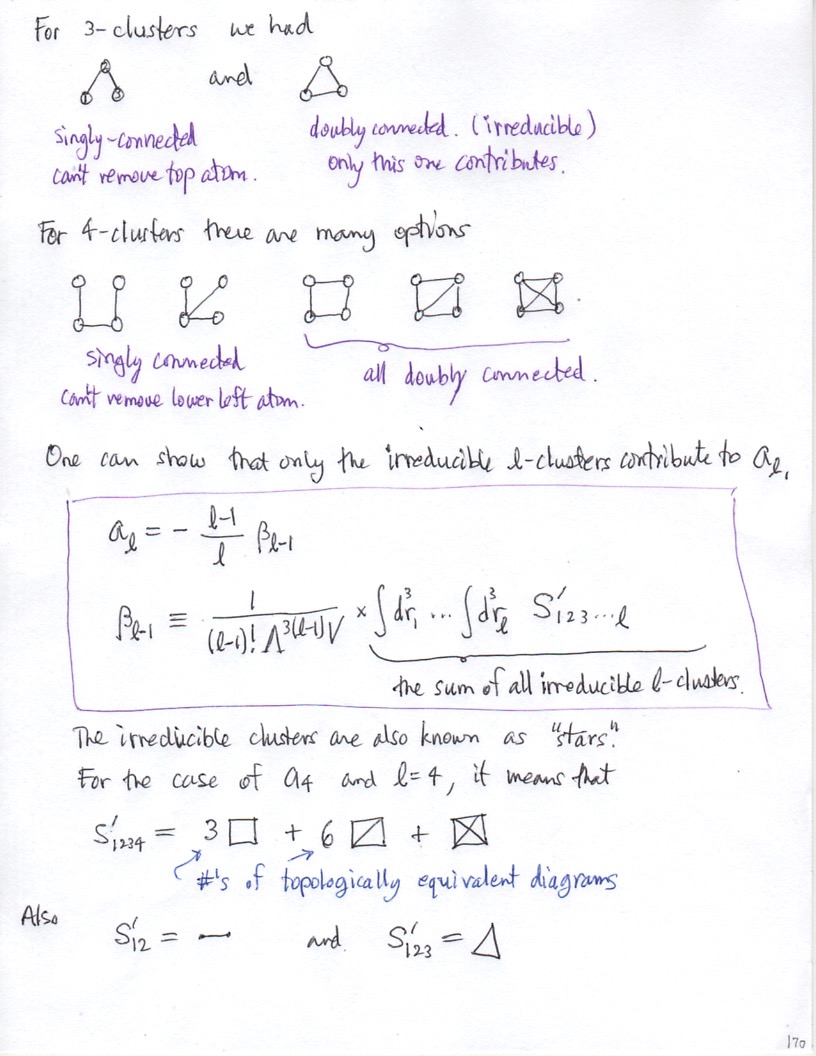 For 3-clusters we had
2 1 3 and
singly-connected doubly connected. (irreducible)
can't remove top atom. only this one contributes.
For 4-clusters there are many options
singly connected all doubly connected.
can't remove lower left atom.
One can show that only the irreducible l-clusters contribute to a_l.
a_l = - (l-1)/l β_{l-1}
β_{l-1} ≡ 1/((l-1)! Λ^{3(l-1)} V) × ∫ dr_1^3 ... ∫ dr_l^3 S'_{123...l}
the sum of all irreducible l-clusters.
The irreducible clusters are also known as "stars".
For the case of a_4 and l=4, it means that
S'_{1234} = 3 □ + 6 ⧄ + ⊠
#'s of topologically equivalent diagrams
Also
S'_{12} = — and S'_{123} = △
170